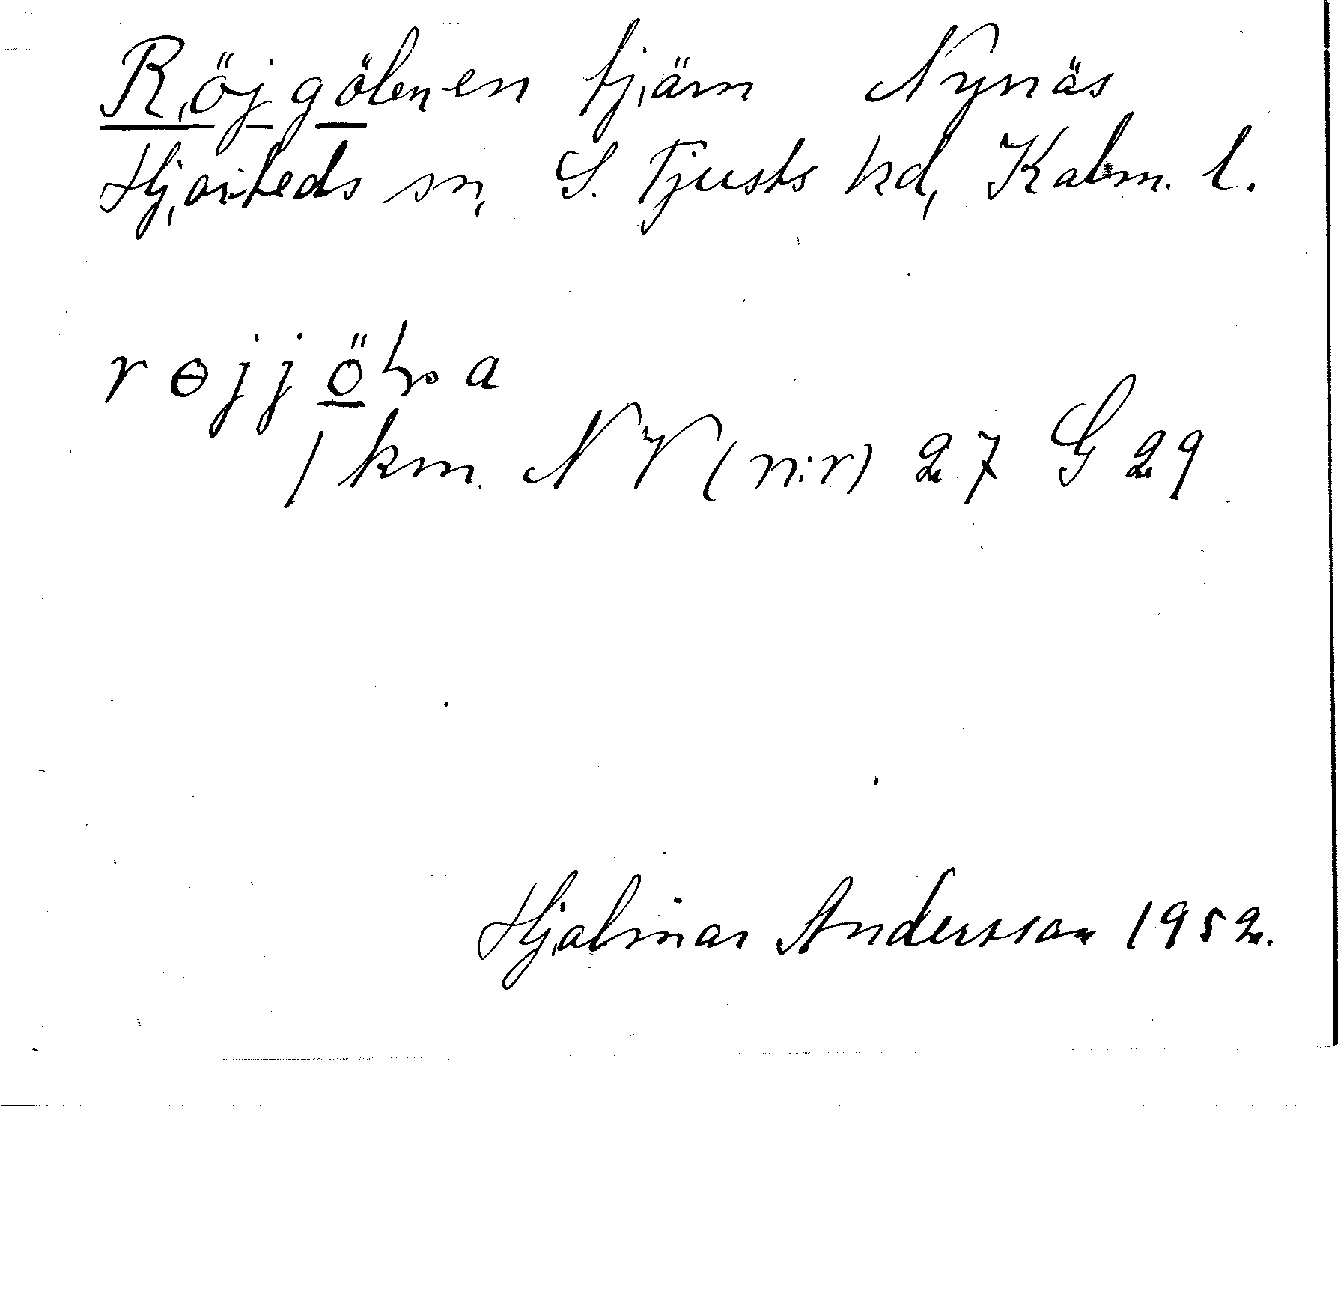 Röjgölen en tjärn Nynäs
Hjorteds sn, S. Tjusts hd, Kalm. l.
röjjöla
1 km. NV (n:r) 27 G 29
Hjalmar Andersson 1952.